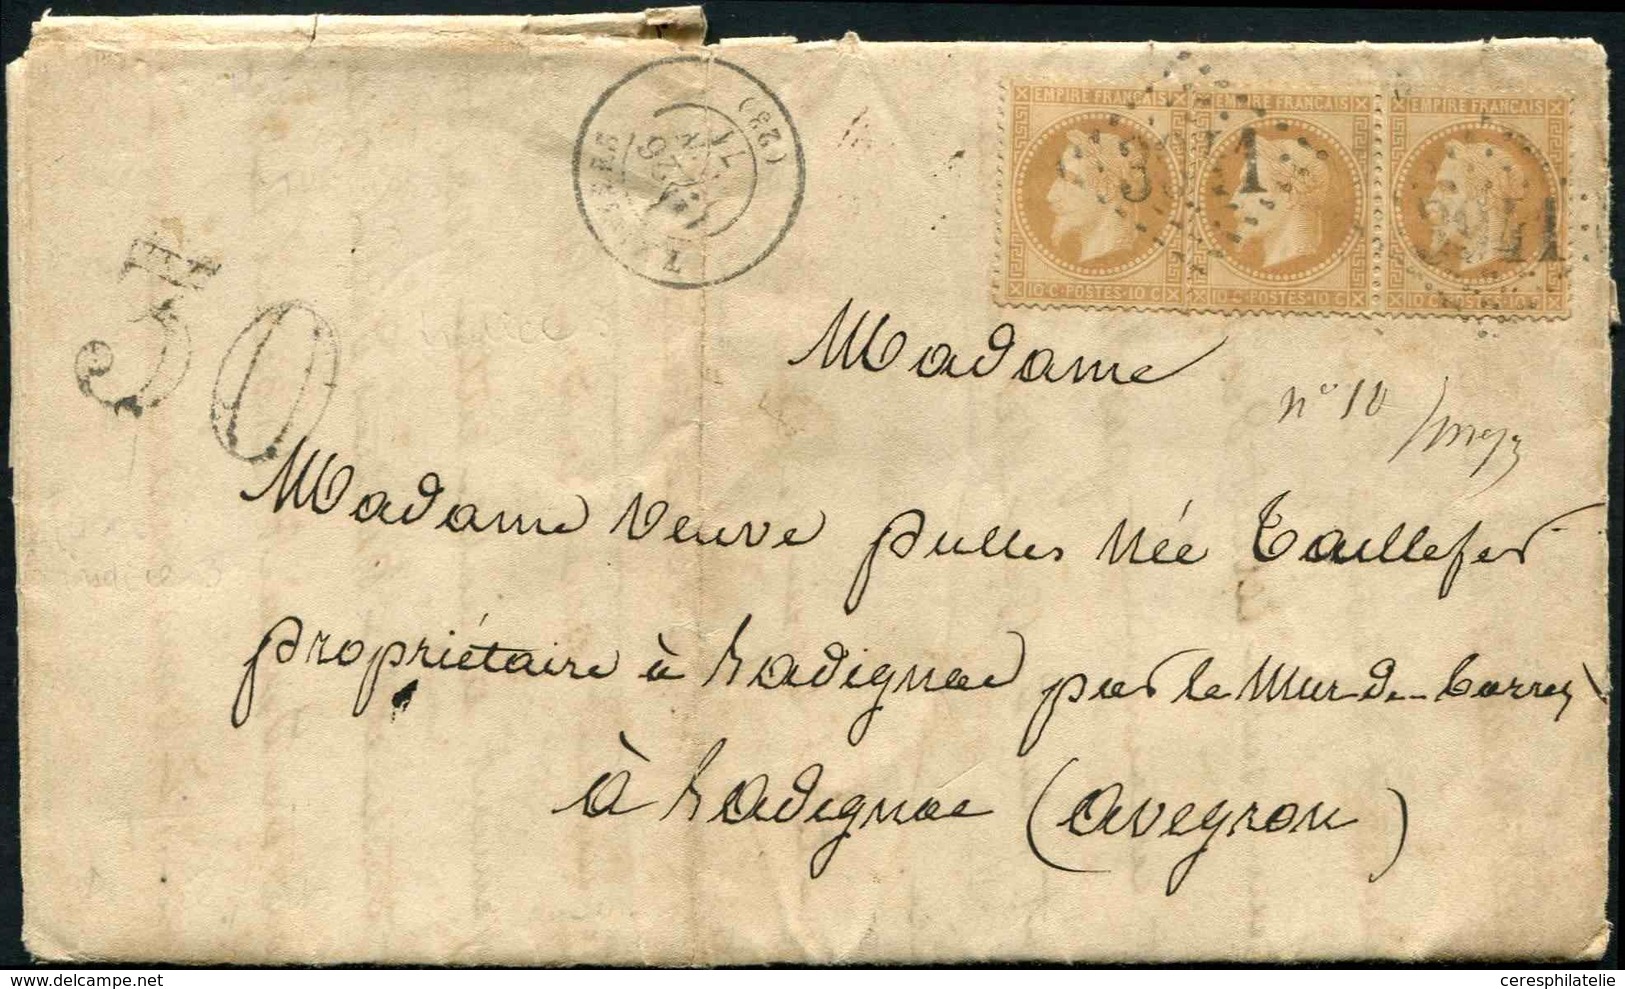 EMPIRE FRANÇAIS EMPIRE FRANÇAIS EMPIRE FRANÇAIS
10 C·POSTES·10 C 10 C·POSTES·10 C 10 C·POSTES·10 C
(23)
26
71
30
Madame
n° 10
Madame Veuve pulles Née Taillefer
propriétaire à Ladignac par le Mur-de-barrez
à Ladignac (aveyron)
delcampe.net
ceresphilatelie